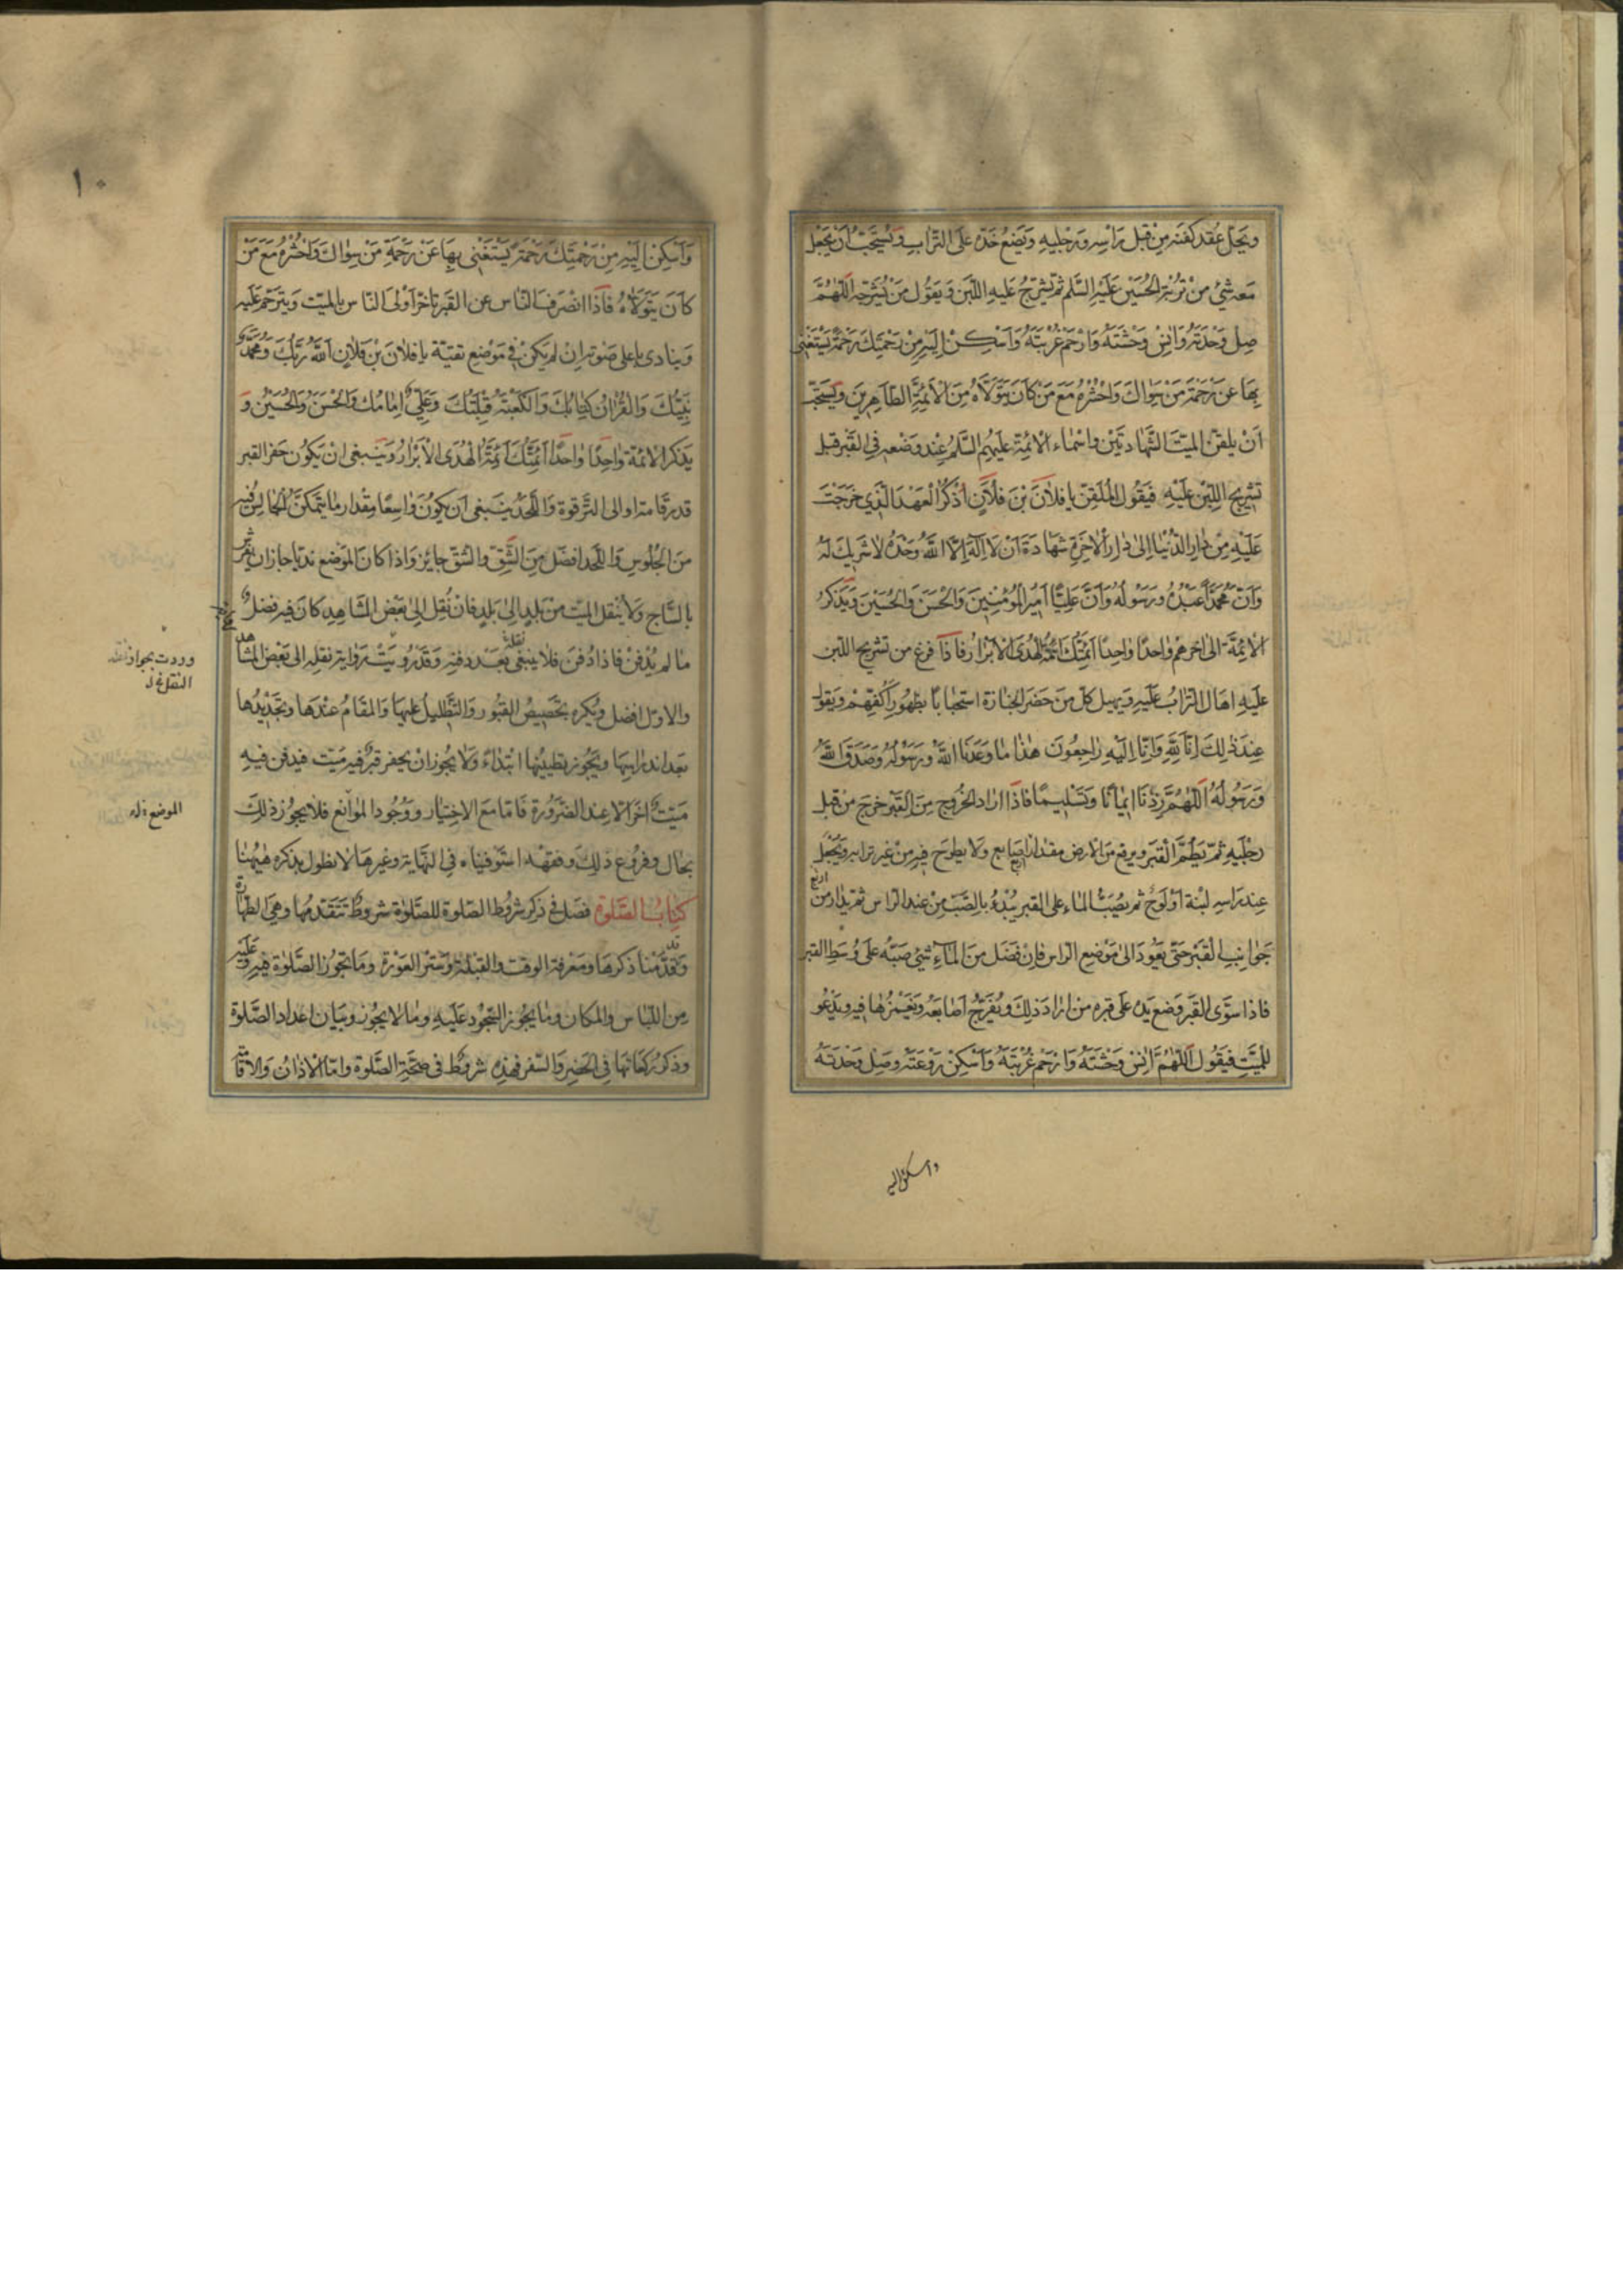 ويحل عقد كفنه من قبل رأسه ورجليه ويضع خده على التراب ويستحب أن يجعل
معه شئ من تربة الحسين عليه السلم ثم يشرج عليه اللبن ويقول من يشرجه اللهم
صل وحدته وانس وحشته وارحم غربته وأسكن إليه من رحمتك رحمة يستغنى
بها عن رحمة من سواك واحشره مع من كان يتولاه من الأئمة الطاهرين ويستحب
أن يلقن الميت الشهادتين واسماء الائمة عليهم السلم عند وضعه في القبر قبل
تشريج اللبن عليه فيقول الملقن يا فلان بن فلان اذكر العهد الذي خرجت
عليه من دار الدنيا إلى دار الاخرة شهادة أن لا إله إلا الله وحده لا شريك له
وأن محمدا عبده ورسوله وأن عليا أمير المؤمنين والحسن والحسين ويذكر
الائمة الى اخرهم واحدا واحدا أئمتك أئمة الهدى الابرار فاذا فرغ من تشريج اللبن
عليه اهال التراب عليه ويهيل كل من حضر الجنازة استحبابا بظهور أكفهم ويقول
عند ذلك انا لله وانا اليه راجعون هذا ما وعدنا الله ورسوله وصدق الله
ورسوله اللهم زدنا ايمانا وتسليما فاذا اراد الخروج من القبر خرج من قبل
رجليه ثم يطم القبر ويرفع من الارض مقدار اربع اصابع ولا يطرح فيه من غير ترابه ويجعل
عند راسه لبنة أو لوح ثم يصب الماء على القبر يبدء بالصب من عند الراس ثم يدار من اربع
جوانب القبر حتى يعود الى موضع الراس فان فضل من الماء شئ صبه على وسط القبر
فاذا سوى القبر وضع يده على قبره من اراد ذلك ويفرج أصابعه ويغمزها فيه ويدعو
للميت فيقول اللهم انس وحشته وارحم غربته وأسكن روعته وصل وحدته
واسكن اليه
١٠
وأسكن إليه من رحمتك رحمة يستغنى بها عن رحمة من سواك واحشره مع من
كان يتولاه فاذا انصرف الناس عن القبر تأخر أولى الناس بالميت ويترحم عليه
وينادى باعلى صوته ان لم يكن في موضع تقية يا فلان بن فلان الله ربك ومحمد
نبيك والقران كتابك والكعبة قبلتك وعلي امامك والحسن والحسين و
يذكر الائمة واحدا واحدا ائمتك أئمة الهدى الابرار وينبغى ان يكون حفر القبر
قدر قامة او الى الترقوة واللحد ينبغى ان يكون واسعا مقدار ما يتمكن الجالس فيه
من الجلوس واللحد افضل من الشق والشق جايز واذا كان الموضع نديا جاز ان يفرش
بالساج ولا ينقل الميت من بلد الى بلد فان نقل الى بعض المشاهد كان فيه فضل
ما لم يدفن فاذا دفن فلا ينبغى نقله بعد دفنه وقد رويت رواية بنقله الى بعض المشاهد
والاول افضل ويكره تجصيص القبور والتظليل عليها والمقام عندها وتجديدها
بعد اندراسها ويجوز تطيينها ابتداء ولا يجوز ان يحفر قبر فيه ميت فيدفن فيه
ميت اخر الا عند الضرورة فاما مع الاختيار ووجود المواضع فلا يجوز ذلك
بحال وفروع ذلك وفقهه استوفيناه في النهاية وغيرها لا نطول بذكره هيهنا
كتاب الصلوة فصل في ذكر شروط الصلوة للصلوة شروط تتقدمها وهي الطهارة
وقد قدمنا ذكرها ومعرفة الوقت والقبلة وستر العورة وما تجوز الصلوة فيه وعليه
من اللباس والمكان وما يجوز السجود عليه وما لا يجوز وبيان اعداد الصلوة
وذكر ركعاتها في الحضر والسفر فهذه شروط في صحة الصلوة واما الاذان والاقامة
ووردت بجواز
النقل
الموضع